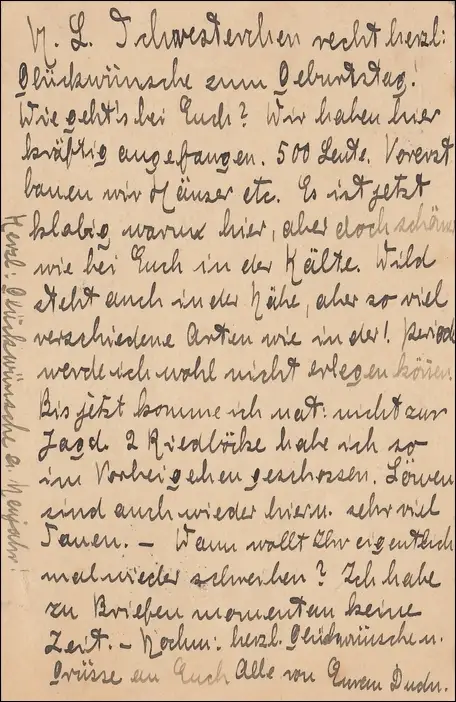 M. L. Schwesterchen recht herzl:
Glückwünsche zum Geburtstag!
Wie geht's bei Euch? Wir haben hier
kräftig angefangen. 500 Leute. Vorerst
bauen wir Häuser etc. Es ist jetzt
klabig warum hier, aber doch schöner
wie bei Euch in der Kälte. Wild
steht auch in der Nähe, aber so viel
verschiedene Arten wie in der 1. Periode
werde ich wohl nicht erlegen können.
Bis jetzt komme ich nat: nicht zur
Jagd. 2 Riedböcke habe ich so
im Vorbeigehen geschossen. Löwen
sind auch wieder hier u. sehr viel
Tauen. – Wann wollt Ihr eigentlich
mal wieder schreiben? Ich habe
zu Briefen momentan keine
Zeit. – Nochm: herzl. Glückwünsche u.
Grüsse an Euch Alle von Eurem
Herzl. Glückwünsche z. Neujahr!